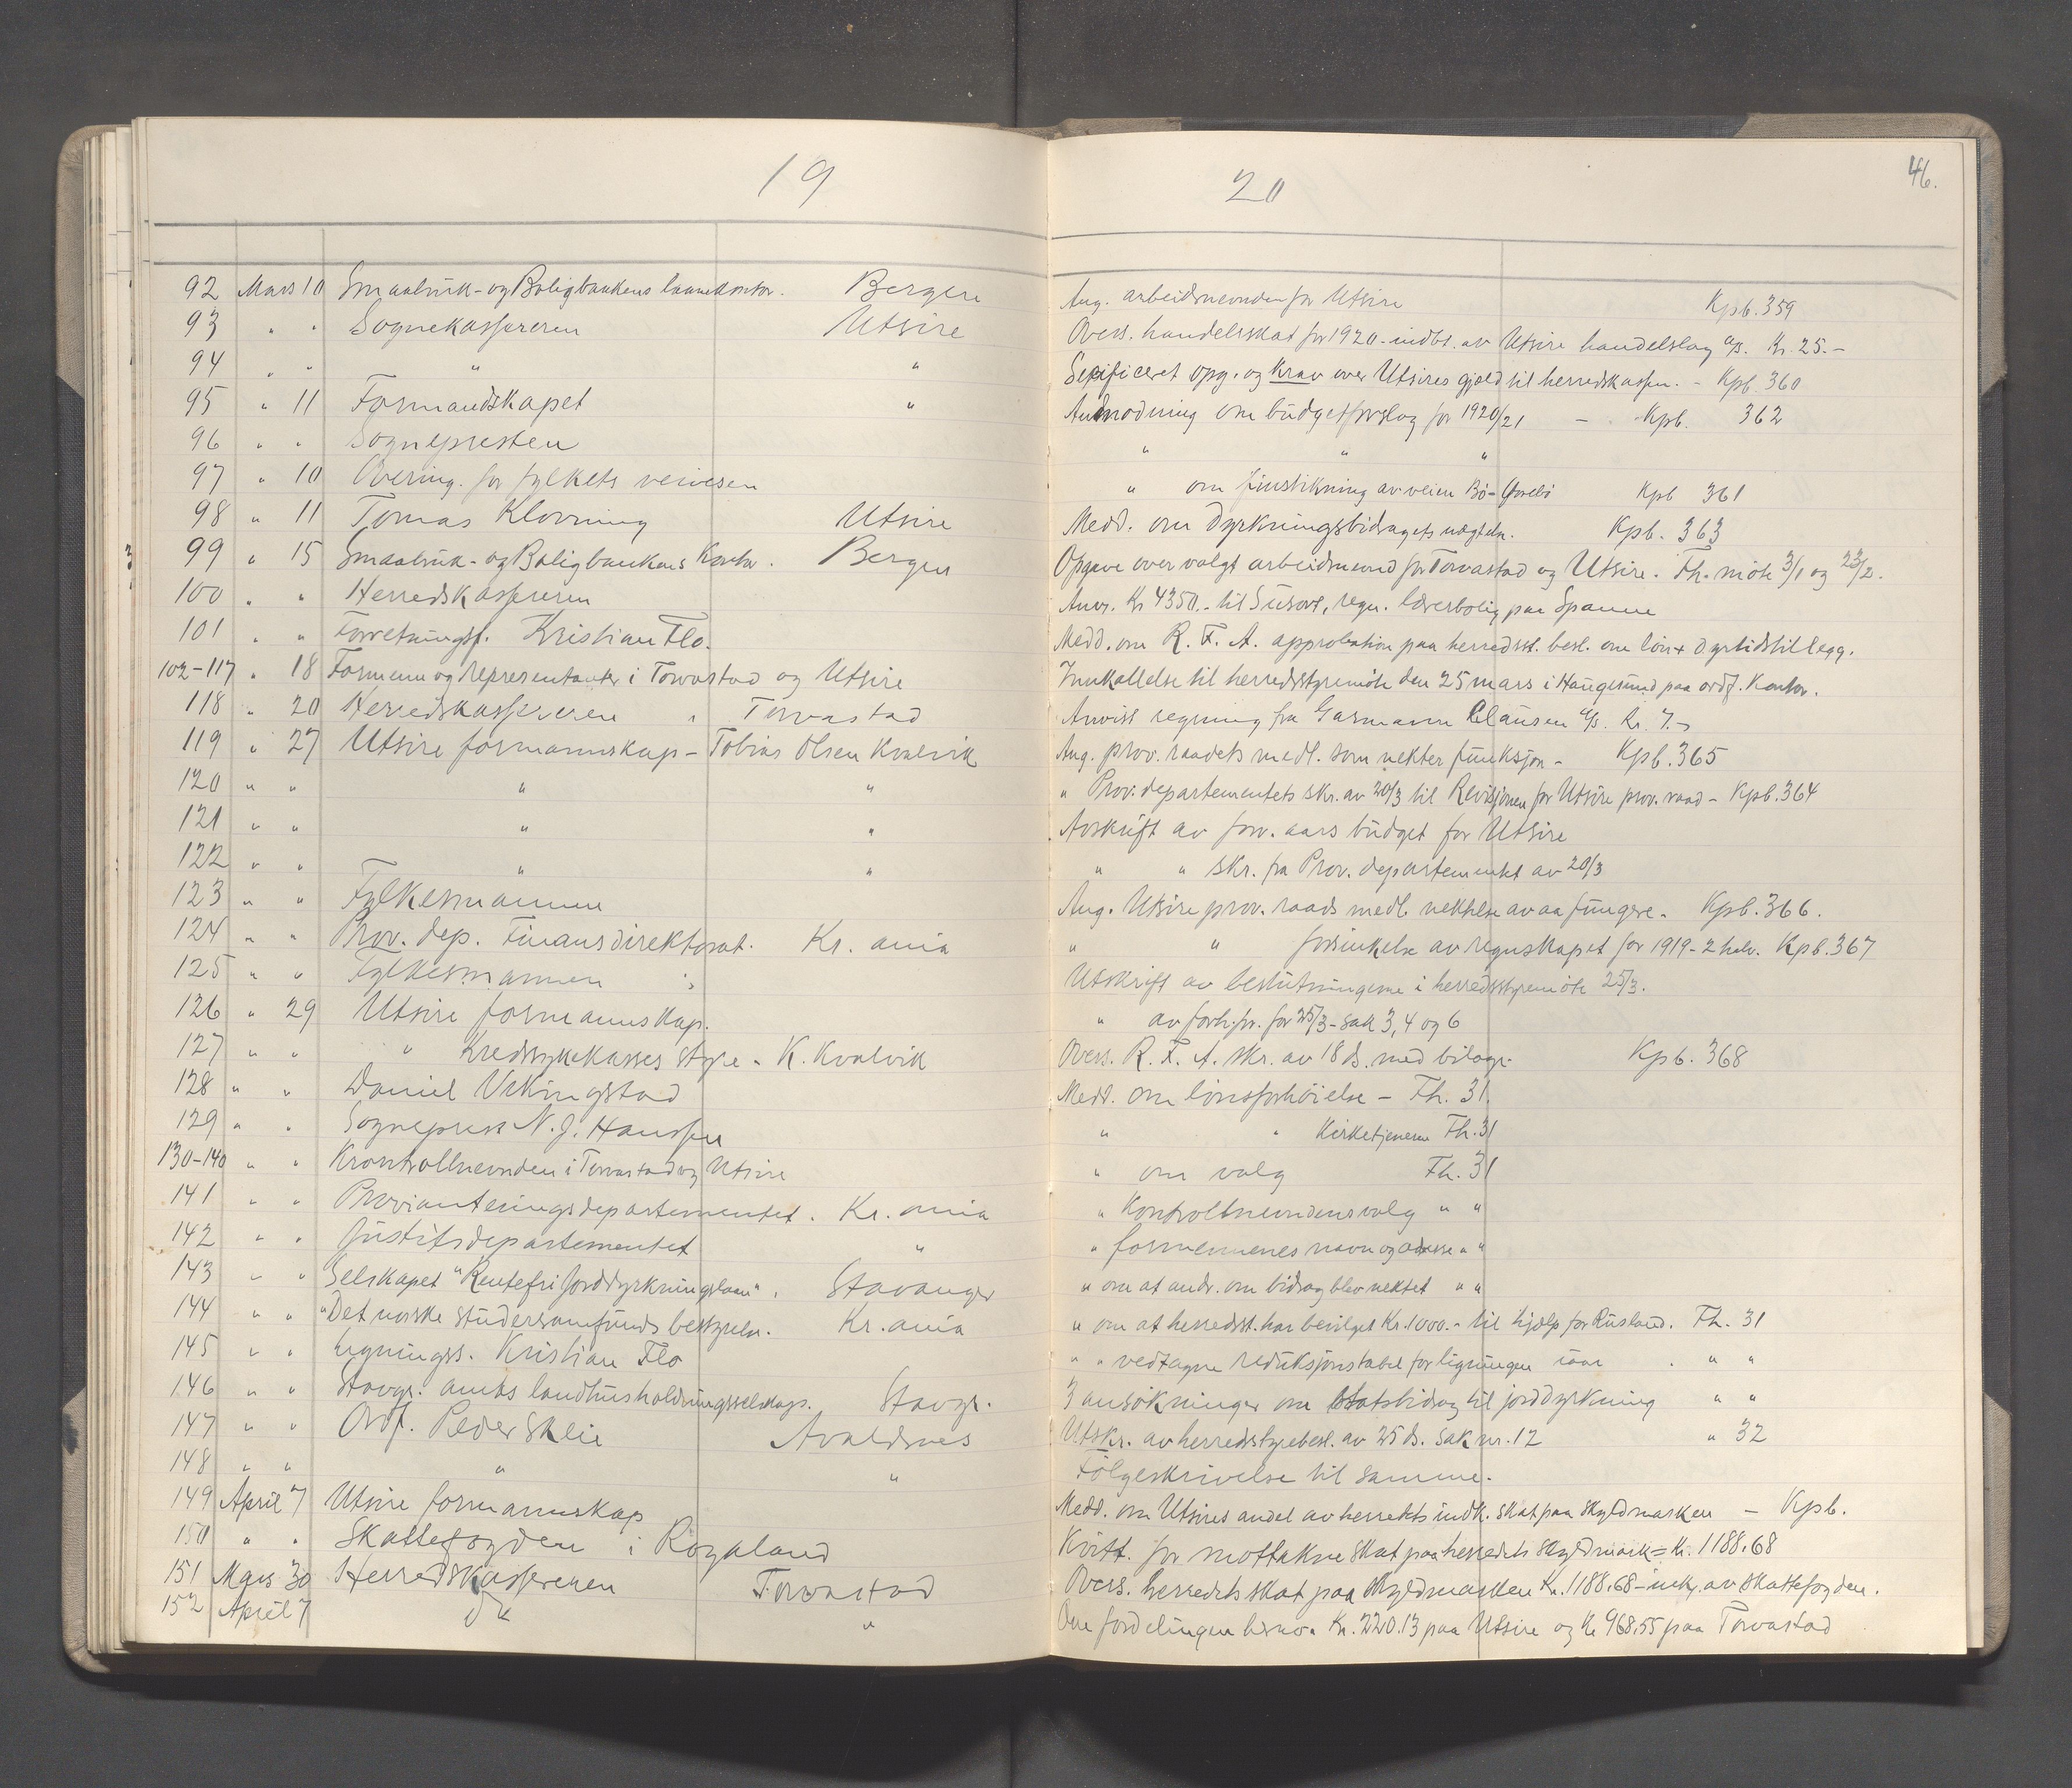 19 20
46.
92 Mars 10 Smaabruk- og Boligbankens laanekontor. Bergen Ang. arbeidsnevnden for Utsire Kpb. 359
93 " " Sognekassereren Utsire Overs. handelsskat for 1920 - indbt. av Utsire handelslag a/s. Kr. 25.-
94 " " " " Sepificeret opg. og Krav over Utsires gjæld til herredskassen. - Kpb. 360
95 " 11 Formandskapet " Anmodning om budgetforslag for 1920/21 - Kpb. 362
96 " " Sognepresten " " "
97 " 10 Overing. for fylkets veivesen " om finstikning av veien Bö- Kpb 361
98 " 11 Tomas Klovning Utsire Medd. om Dyrkningsbidragets nægtelse. Kpb. 363
99 " 15 Smaabruk- og Boligbankens Kontor. Bergen Opgave over valgt arbeidsnevnd for Torvastad og Utsire. Fh. möte 3/1 og 23/2.
100 " " Herredskassereren Anv. Kr 4350.- til regn. lærerbolig paa Spanne
101 " " Forretningsf. Kristian Flo. Medd. om R. F. A. approbation paa herredsst. besl. om lön + dyrtidstillegg.
102-117 " 18 Formenn og representanter i Torvastad og Utsire Innkallelse til herredsstyremöte den 25 mars i Haugesund paa ordf. Kontor.
118 " 20 Herredskassereren " Torvastad Anvist regning fra Garmann Clausen a/s. Kr. 7.-
119 " 27 Utsire formannskap - Tobias Olsen Kvalvik Ang. prov. raadets medl. som nekter funksjon - Kpb. 365
120 " " " " " Prov. departementets skr. av 20/3 til Revisjonen for Utsire prov. raad - Kpb. 364
121 " " " " Avskrift av forr. aars budget for Utsire
122 " " " " " " skr. fra Prov. departementet av 20/3
123 " " Fylkesmannen Ang. Utsire prov. raads medl. nektelse av aa fungere. Kpb. 366.
124 " " Prov. dep. Finansdirektorat. Kr. ania " " forsinkelse av regnskapet for 1919 - 2 halv. Kpb. 367
125 " " Fylkesmannen " Utskrift av beslutningerne i herredsstyremöte 25/3.
126 " 29 Utsire formannskap. " av forh. pr. for 25/3 - sak 3, 4 og 6
127 " " " Kredssykekasses styre - K. Kvalvik Overs. R. F. A. skr. av 18 ds. med bilage. Kpb. 368
128 " " Daniel Vikingstad Medd. om lönsforhöielse - Fh. 31.
129 " " Sogneprest N. J. Hanssen " " Kirketjeneren Fh. 31
130-140 " " Krontrollnevnden i Torvastad og Utsire " om valg Fh. 31
141 " " Provianteringsdepartementet. Kr. ania " Kontrollnevndens valg " "
142 " " Justitsdepartementet " " formennenes navn og adresse " "
143 " " Selskapet "Rentefri Jorddyrkningslaan". Stavanger " om at andr. om bidrag blev nektet " "
144 " " "Det norske Studersamfunds bestyrelse. Kr. ania " om at herredsst. har bevilget Kr. 1000.- til hjælp for Rusland. Fh. 31
145 " " Ligningss. Kristian Flo " " vedtagne reduksjonstabel for ligningen iaar . " "
146 " " Stavgr. amts landhusholdningsselskap. Stavgr. 3 ansökninger om statsbidrag til jorddyrkning " "
147 " " Ordf. Peder Skeie Avaldsnes Utskr. av herredsstyrebesl. av 25 ds. sak nr. 12 " 32
148 " " " " Fölgeskrivelse til samme.
149 April 7 Utsire formannskap Medd. om Utsires andel av herredets indk. skat paa Skyldmarken - Kpb.
150 " " Skattefogden i Rogaland Kvitt. for mottakne skat paa herredets skyldmark = Kr. 1188.68
151 Mars 30 Herredskassereren Torvastad Overs. herredets skat paa skyldmarken Kr. 1188.68 - av skattefogden.
152 April 7 " " Om fordelingen herav. Kr. 220.13 paa Utsire og Kr 968.55 paa Torvastad